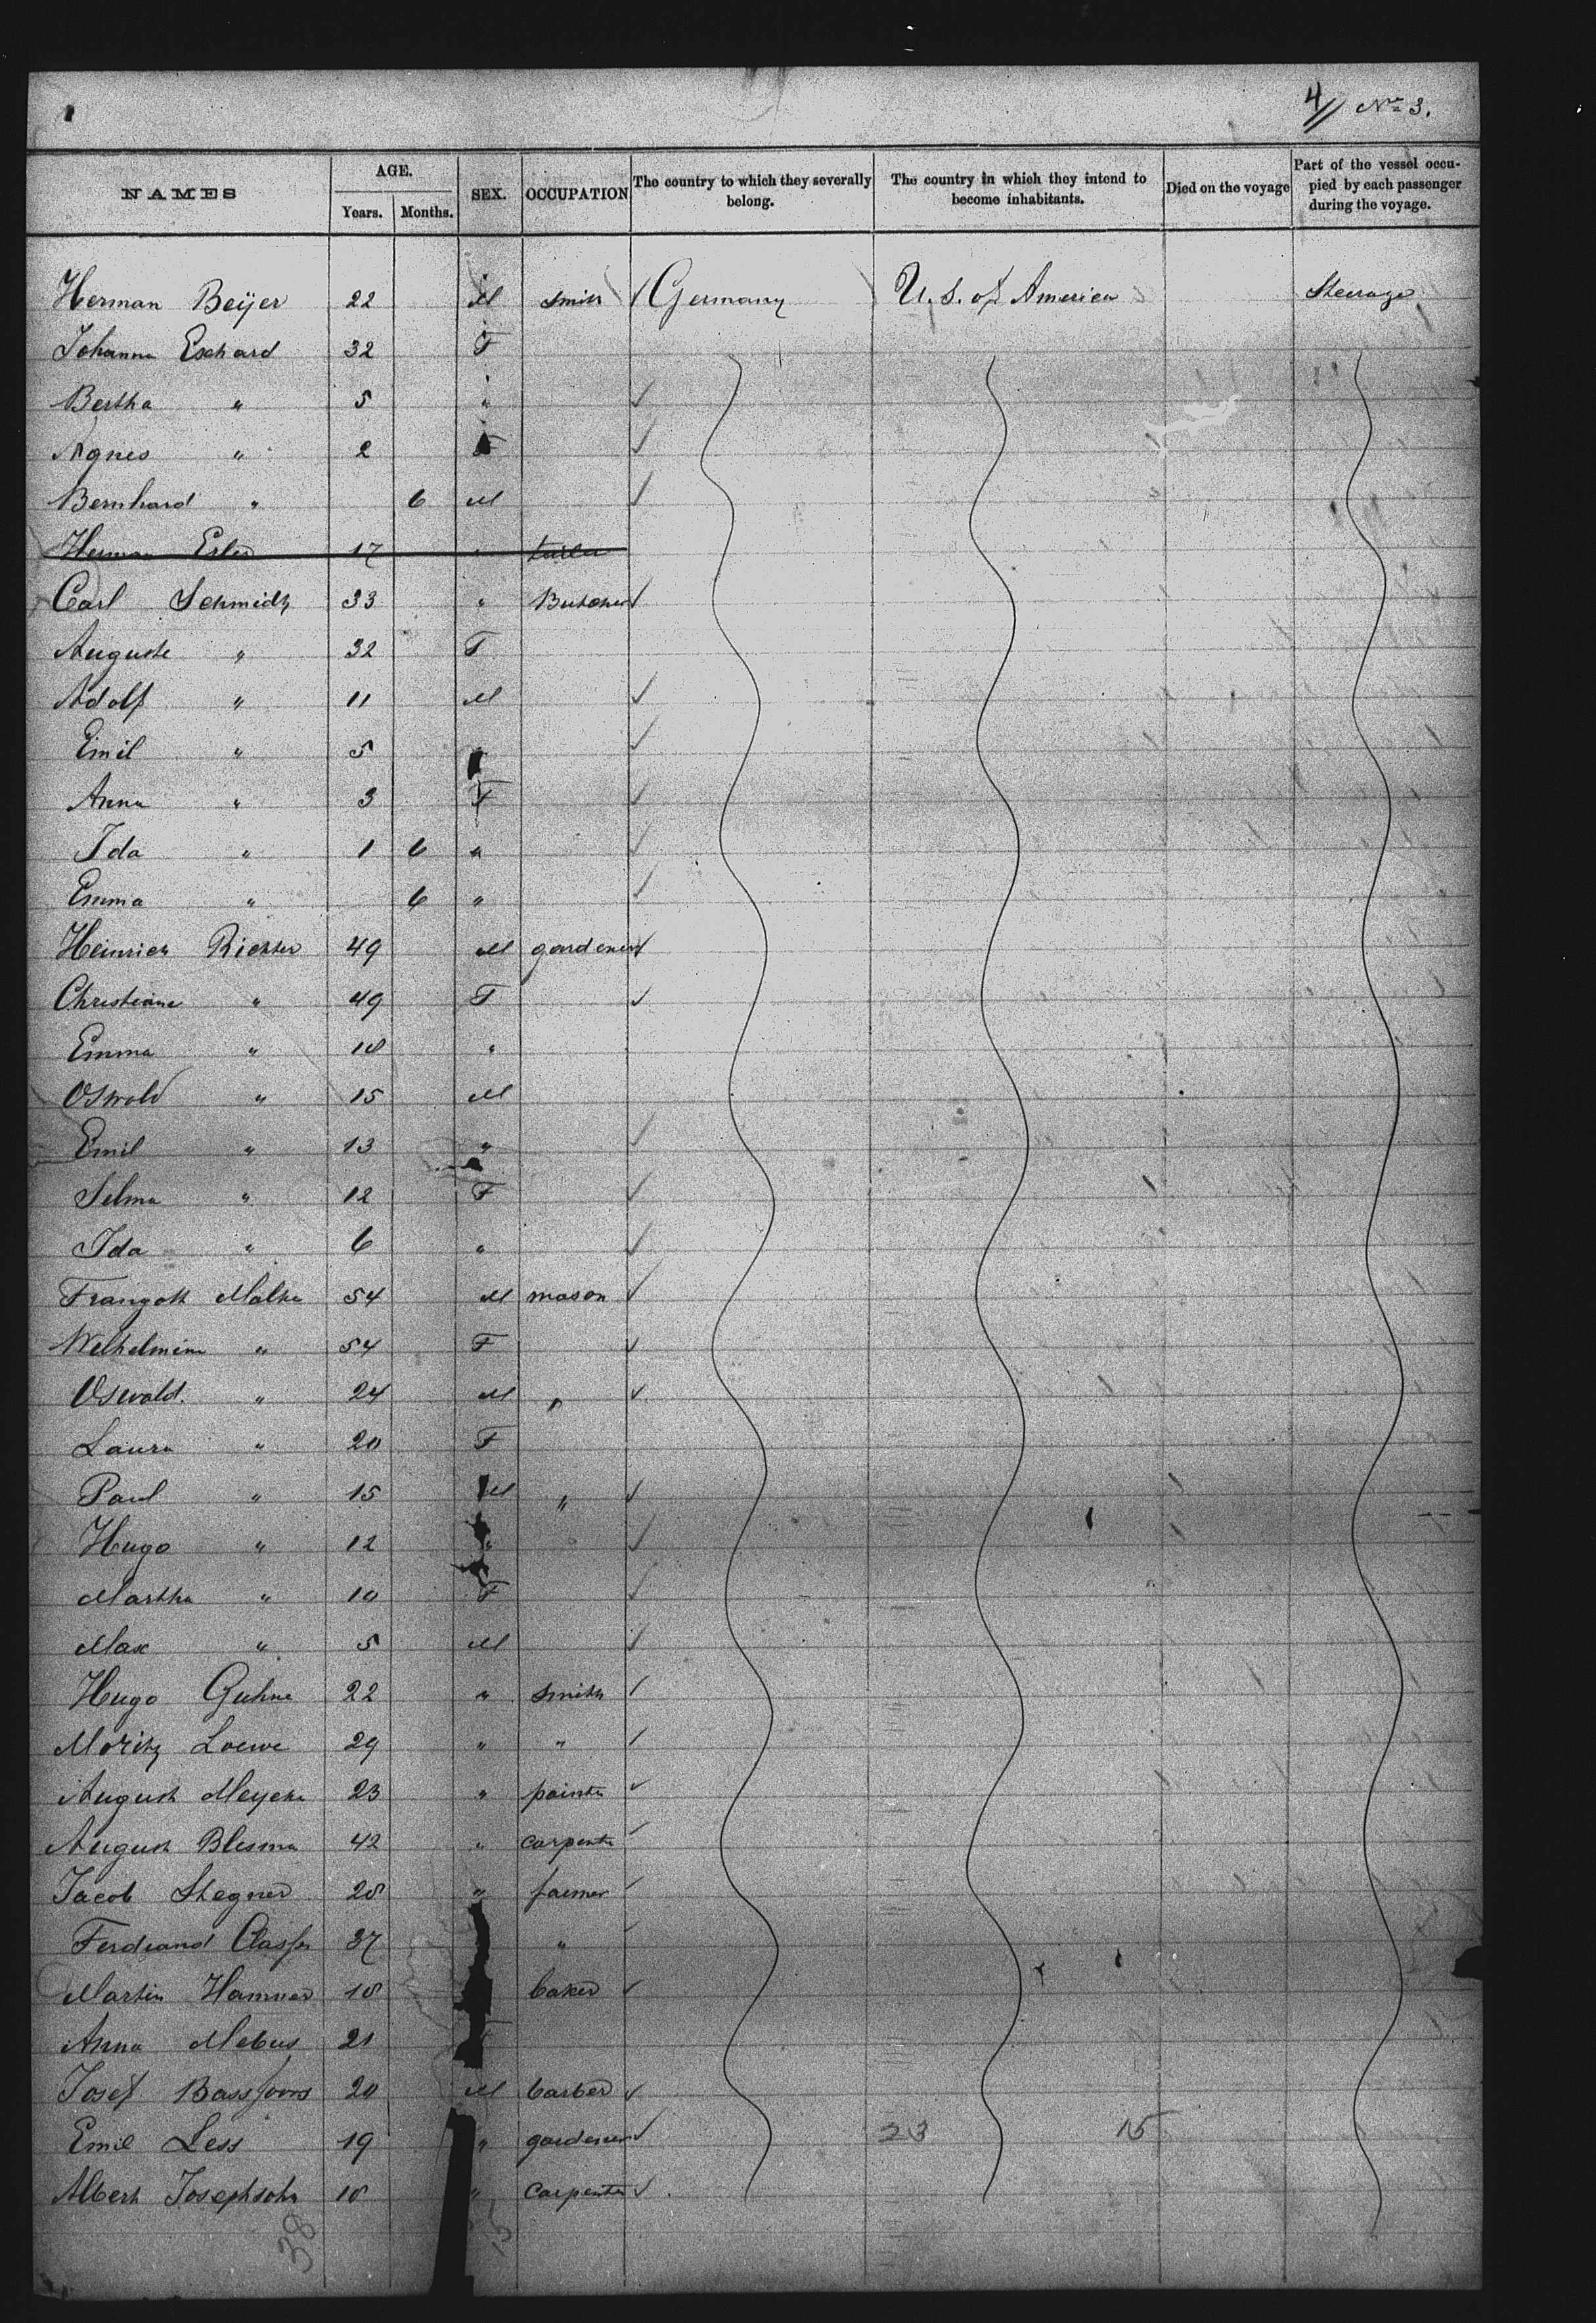 4// No 3.
NAMES AGE. Years. Months. SEX. OCCUPATION The country to which they severally belong. The country in which they intend to become inhabitants. Died on the voyage Part of the vessel occu-pied by each passenger during the voyage.
Herman Beijer 22 M smith ✓ Germany U. S. of America Steerage
Johanna Eschard 32 F
Bertha " 5 " ✓
Agnes " 2 F ✓
Bernhard " 6 M ✓
Herman 17 "
Carl Schmidtz 33 " Butcher ✓
Auguste " 32 F
Adolf " 11 M ✓
Emil " 5 " ✓
Anna " 3 F ✓
Ida " 1 6 " ✓
Emma " 6 " ✓
Heinrich Richter 49 M gardener ✓
Christiane " 49 F ✓
Emma " 18 "
Oswald " 15 M
Emil " 13 " ✓
Selma " 12 F ✓
Ida " 6 " ✓
Frangott Malke 54 M mason ✓
Welhelmine " 54 F ✓
Oswald. " 24 M " ✓
Laura " 20 F
Paul " 15 M " ✓
Hugo " 12 " ✓
Martha " 10 F ✓
Max " 5 M ✓
Hugo Guhne 22 " smith ✓
Moritz Loewe 29 " " ✓
August Meyer 23 " painter ✓
August 42 " carpenter ✓
Jacob Stegner 28 " farmer ✓
Ferdinand 37 " ✓
Martin Hammer 18 baker ✓
Anna Mebus 21 F
Josef 20 M barber ✓
Emil Less 19 " gardener ✓ 23 15
Albert Josephsohn 18 " Carpenter ✓
38 15